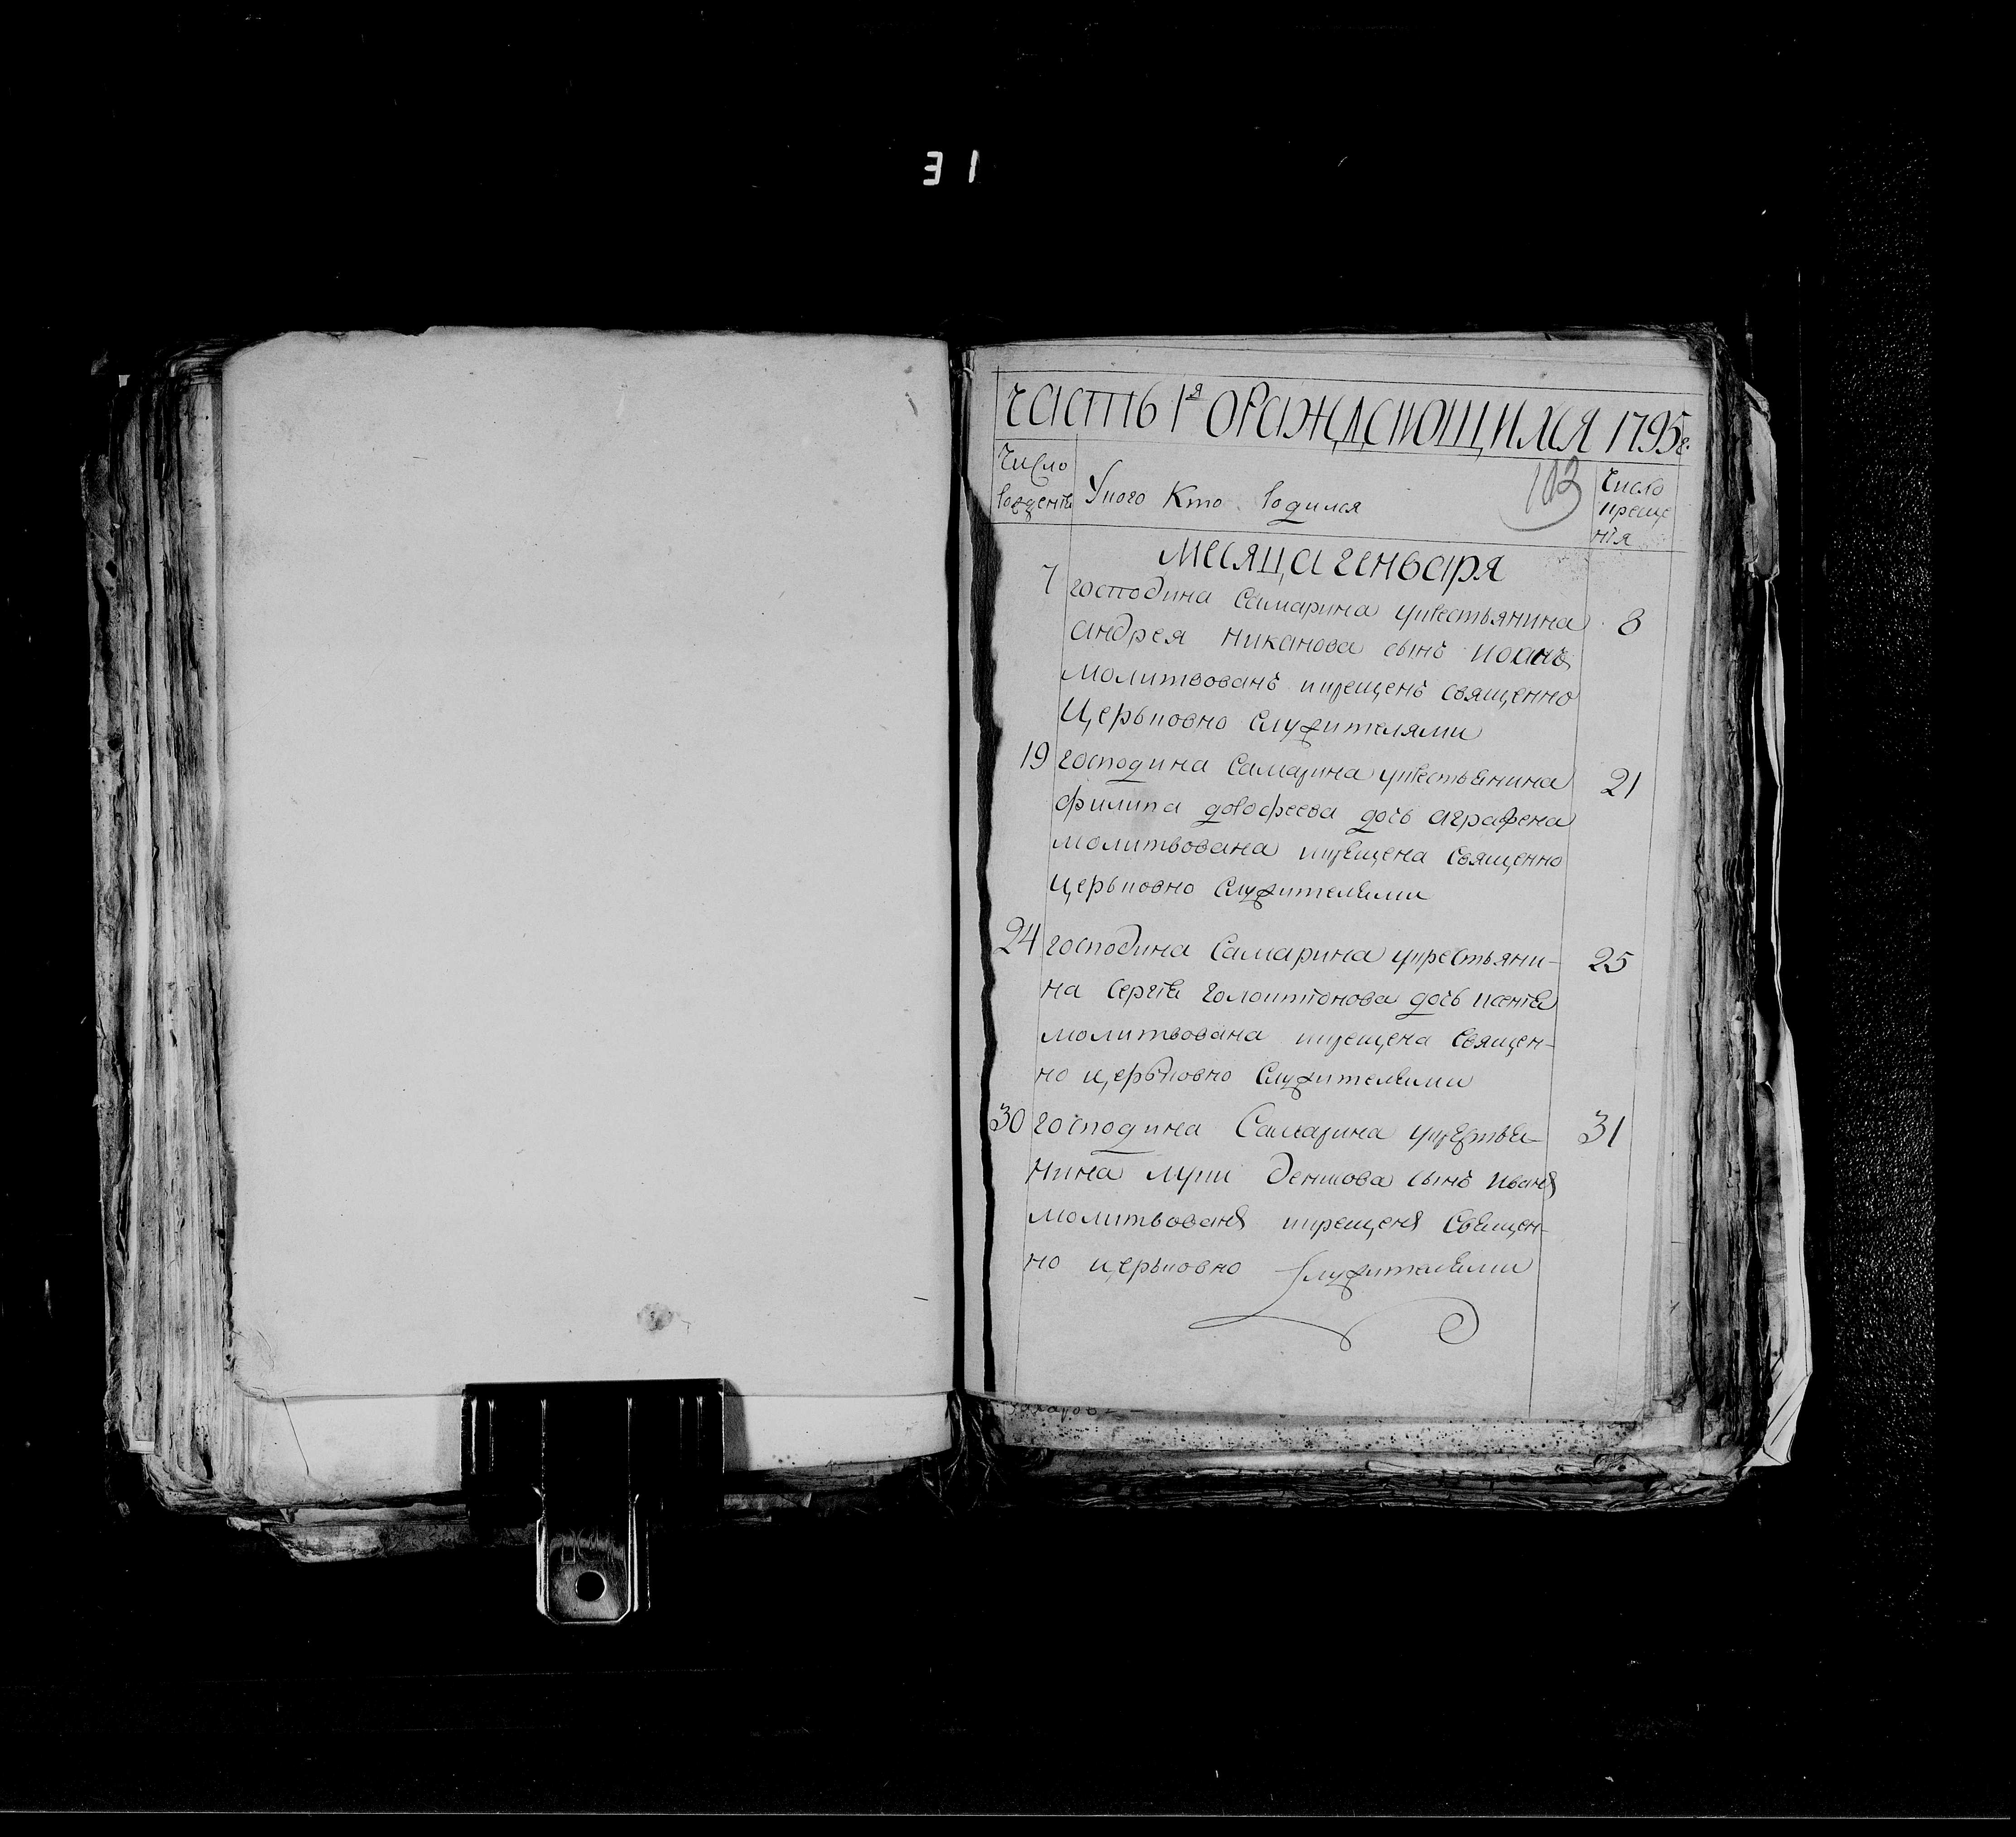 31
ЧАСТЬ 1я О РАЖДАЮЩИХСЯ 1795г.
Число рождения
У кого кто родился
103
Число крещения
Месяца генваря
7 господина самарина у крестьянина 8
андрея никанова сынъ иоанъ
молитвованъ и крещенъ священно
церьковно служителями
19 господина самарина у крестьянина 21
филипа дорофеева дочь аграфена
молитвована и крещена священно
церьковно служителями
24 господина самарина у крестьяни- 25
на сергия дочь ксения
молитвована и крещена священ-
но церьковно служителями
30 господина Самарина у крестья- 31
нина луки денисова сынъ иванъ
молитвованъ и крещенъ священ-
но церьковно служителями